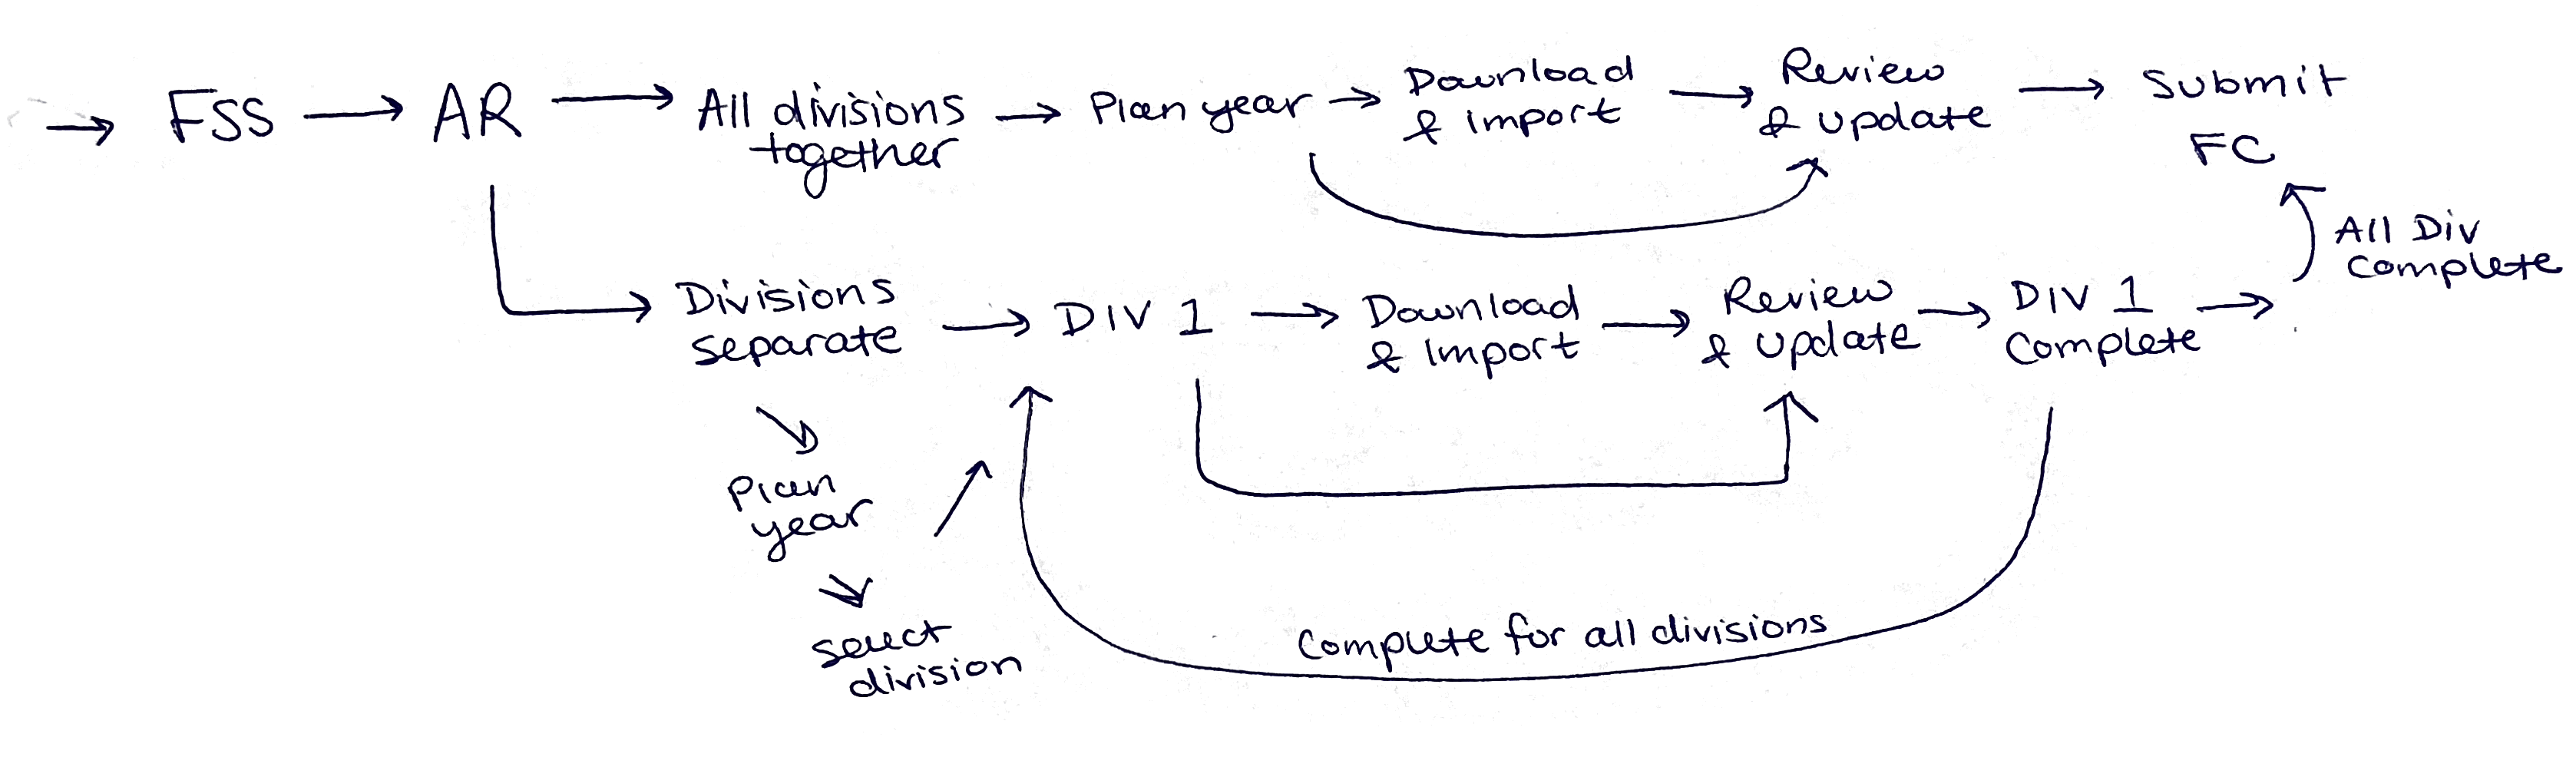 FSS
AR
All divisions
together
Plan year
Download
& Import
Review
& update
Submit
FC
All Div
Complete
Divisions
separate
DIV 1
Download
& Import
Review
& update
DIV 1
Complete
Plan
year
select
division
Complete for all divisions